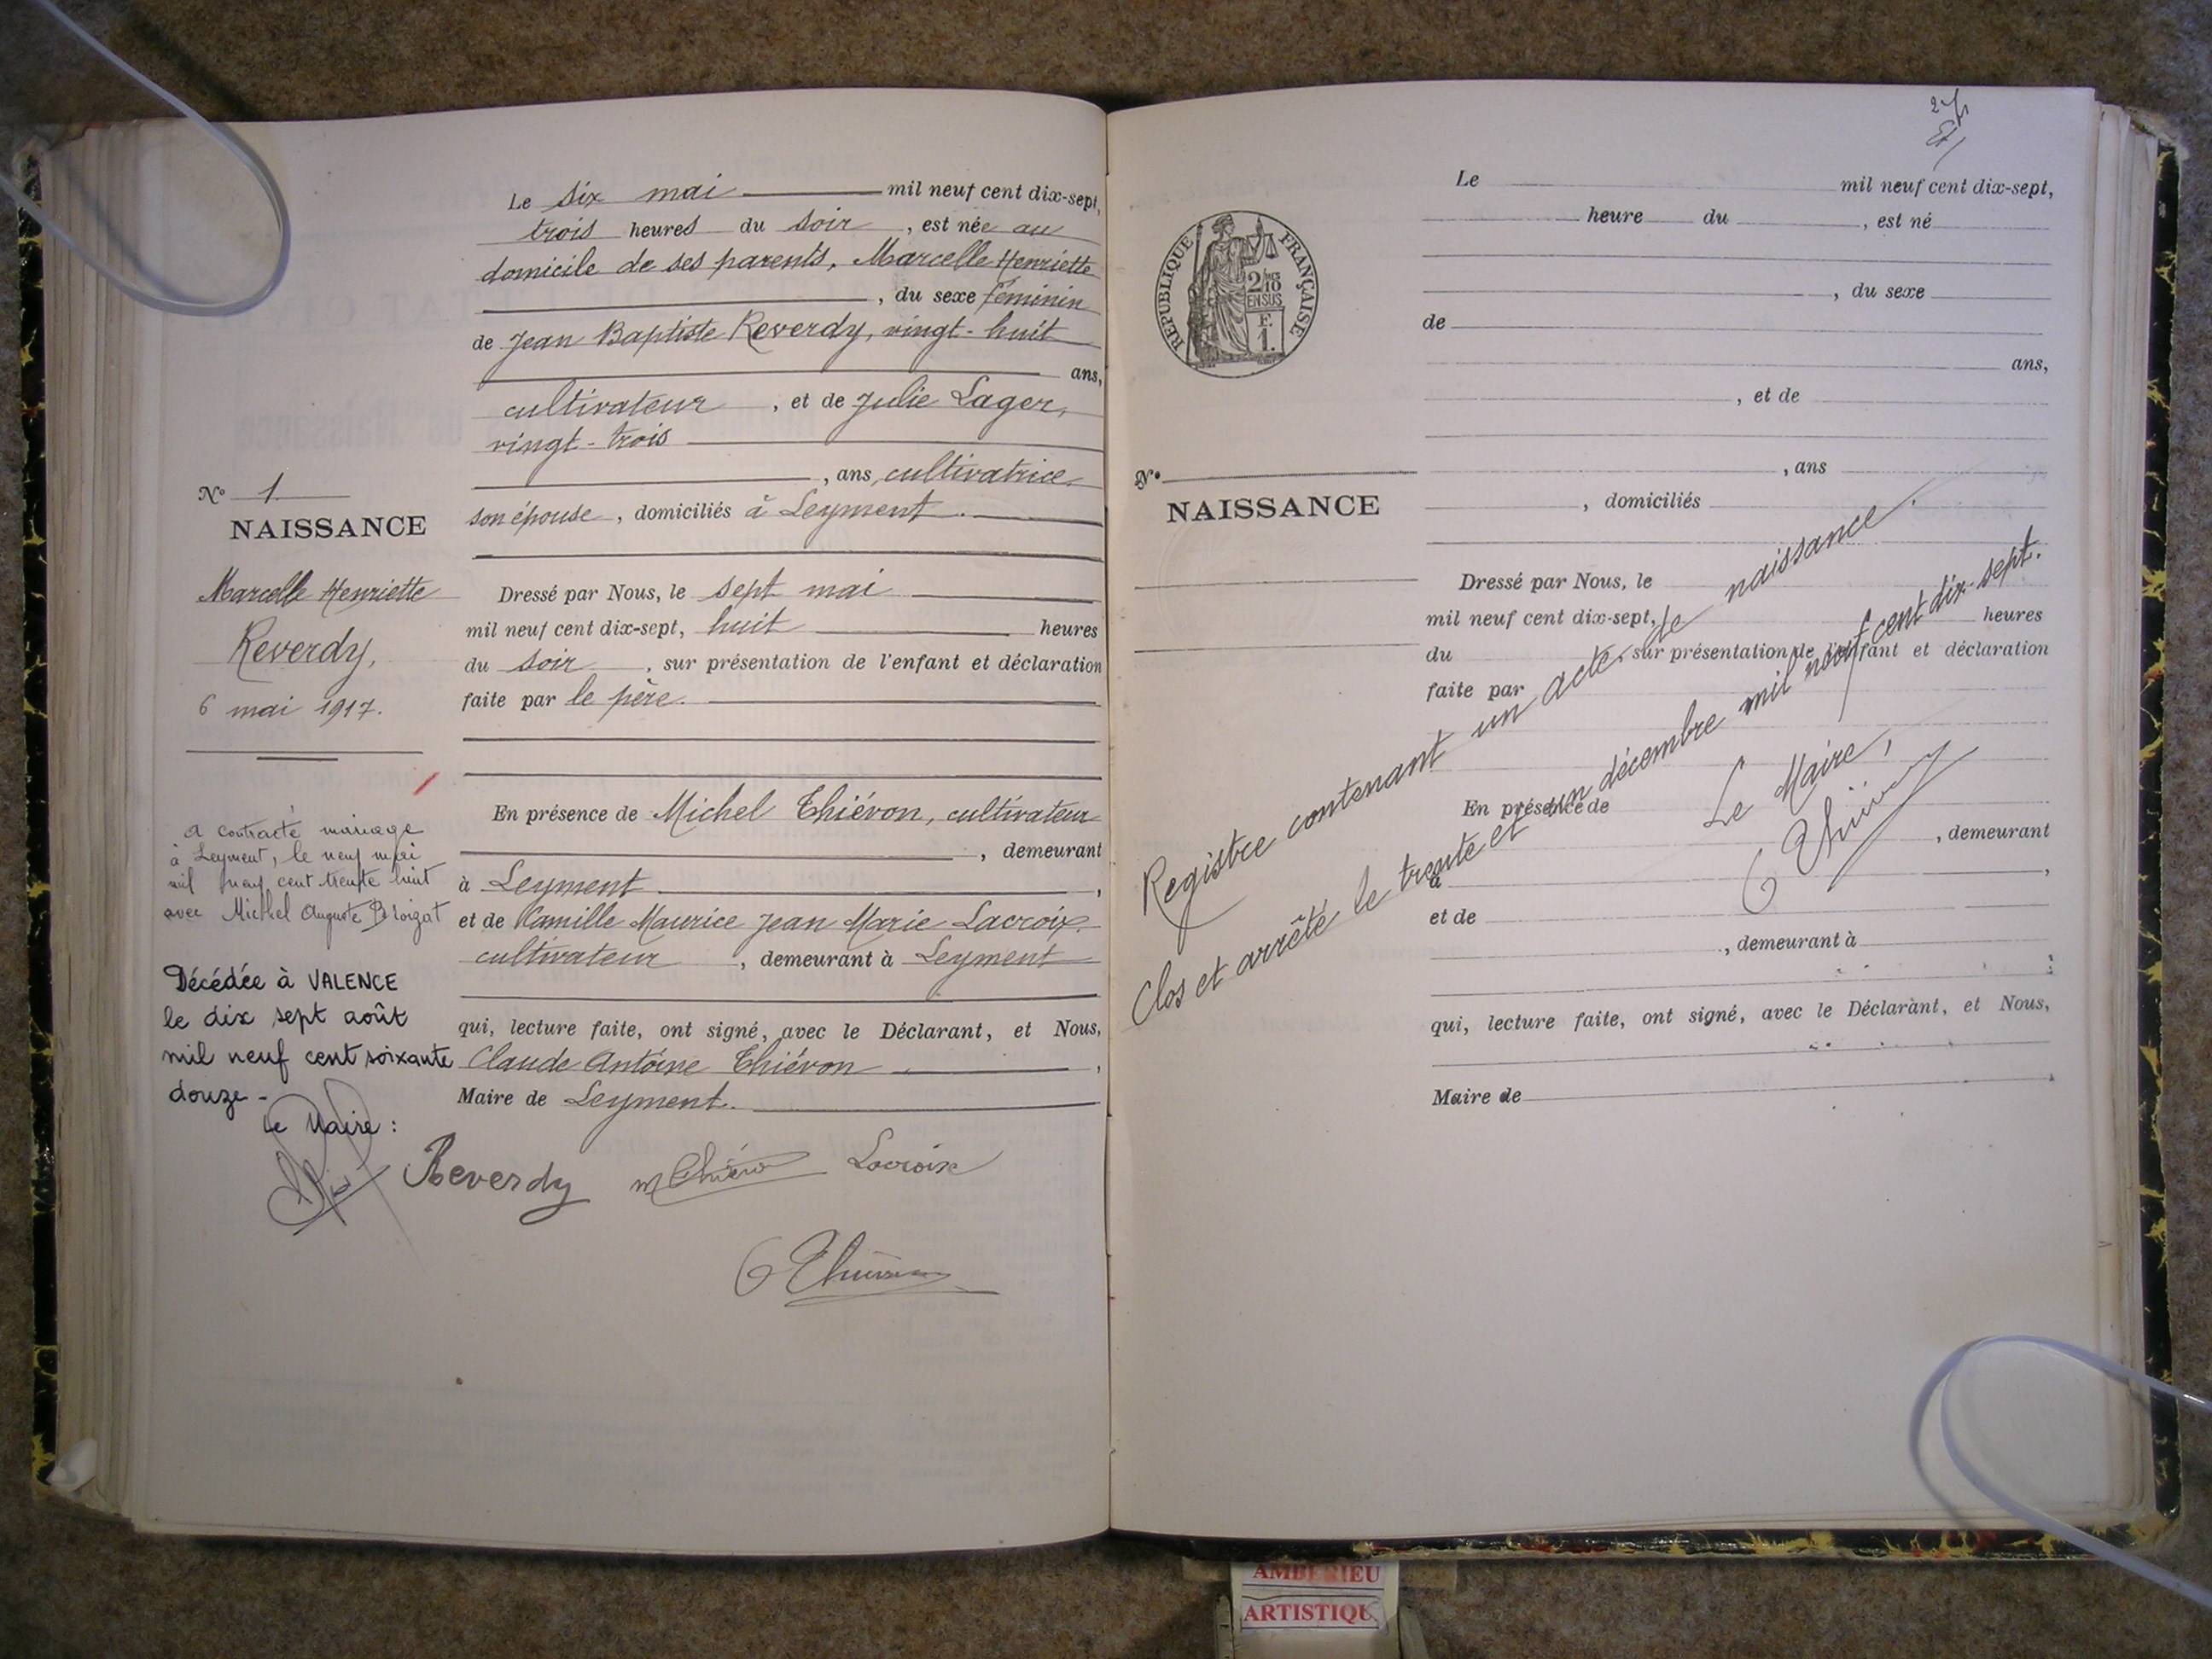 Le six mai mil neuf cent dix-sept,
trois heures du soir, est née au
domicile de ses parents, Marcelle Henriette
, du sexe féminin
de Jean Baptiste Reverdy, vingt-huit
ans,
cultivateur, et de Julie Lager,
vingt-trois
, ans, cultivatrice,
son épouse, domiciliés à Leyment.
Dressé par Nous, le sept mai
mil neuf cent dix-sept, huit heures
du soir, sur présentation de l'enfant et déclaration
faite par le père.
En présence de Michel Thiévon, cultivateur
, demeurant
à Leyment,
et de Camille Maurice Jean Marie Lacroix,
cultivateur, demeurant à Leyment
qui, lecture faite, ont signé, avec le Déclarant, et Nous,
Claude Antoine Thiévon,
Maire de Leyment.
Reverdy M Thiévon Lacroix
C Thiévon
N° 1
NAISSANCE
Marcelle Henriette
Reverdy,
6 mai 1917.
a contracté mariage
à Leyment, le neuf mai
mil neuf cent trente huit
avec Michel Auguste
Décédée à VALENCE
le dix sept août
mil neuf cent soixante
douze -
le Maire :
2
RÉPUBLIQUE FRANÇAISE
2/10
EN SUS
F.
1.
N°
NAISSANCE
Le mil neuf cent dix-sept,
heure du , est né
, du sexe
de
ans,
, et de
, ans
, domiciliés
Dressé par Nous, le
mil neuf cent dix-sept, heures
du , sur présentation de l'enfant et déclaration
faite par
En présence de
, demeurant
à ,
et de
, demeurant à
qui, lecture faite, ont signé, avec le Déclarant, et Nous,
Maire de
Registre contenant un acte de naissance.
Clos et arrêté le trente et un décembre mil neuf cent dix-sept.
Le Maire,
C Thiévon
AMBERIEU
ARTISTIQU